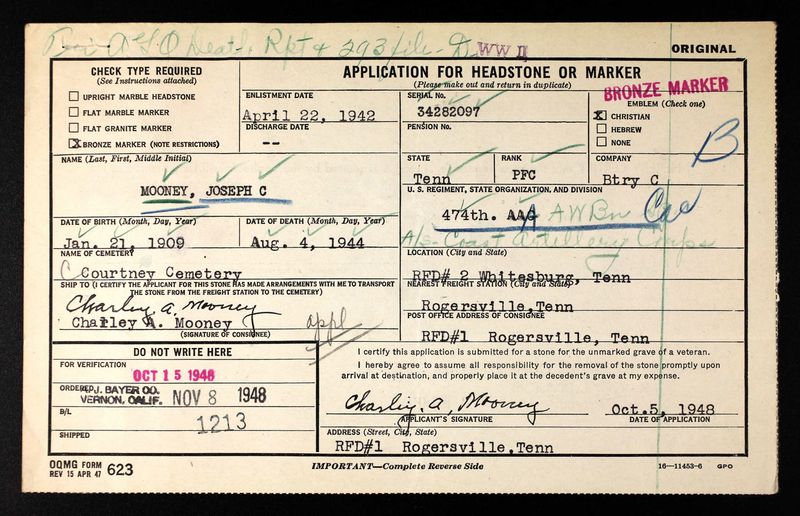 AGO Death Rpt & 293 file - D. WW II
ORIGINAL
CHECK TYPE REQUIRED
(See Instructions attached)
UPRIGHT MARBLE HEADSTONE
FLAT MARBLE MARKER
FLAT GRANITE MARKER
X BRONZE MARKER (NOTE RESTRICTIONS)
APPLICATION FOR HEADSTONE OR MARKER
(Please make out and return in duplicate)
ENLISTMENT DATE
April 22, 1942
DISCHARGE DATE
--
SERIAL No.
34282097
PENSION No.
BRONZE MARKER
EMBLEM (Check one)
X CHRISTIAN
HEBREW
NONE
B
NAME (Last, First, Middle Initial)
MOONEY, JOSEPH C
STATE
Tenn
RANK
PFC
COMPANY
Btry C
U. S. REGIMENT, STATE ORGANIZATION, AND DIVISION
474th. AAA A W Bn Cac
A/c Coast Artillery Corps
DATE OF BIRTH (Month, Day, Year)
Jan. 21, 1909
DATE OF DEATH (Month, Day, Year)
Aug. 4, 1944
NAME OF CEMETERY
Courtney Cemetery
LOCATION (City and State)
RFD# 2 Whitesburg, Tenn
SHIP TO (I CERTIFY THE APPLICANT FOR THIS STONE HAS MADE ARRANGEMENTS WITH ME TO TRANSPORT
THE STONE FROM THE FREIGHT STATION TO THE CEMETERY)
Charley A. Mooney
Charley A. Mooney
(SIGNATURE OF CONSIGNEE)
appl
NEAREST FREIGHT STATION (City and State)
Rogersville, Tenn
POST OFFICE ADDRESS OF CONSIGNEE
RFD#1 Rogersville, Tenn
DO NOT WRITE HERE
FOR VERIFICATION
OCT 15 1948
ORDERED
J. BAYER CO.
VERNON, CALIF.
NOV 8 1948
B/L
1213
SHIPPED
I certify this application is submitted for a stone for the unmarked grave of a veteran.
I hereby agree to assume all responsibility for the removal of the stone promptly upon
arrival at destination, and properly place it at the decedent's grave at my expense.
Charley. A. Mooney
APPLICANT'S SIGNATURE
Oct.5, 1948
DATE OF APPLICATION
ADDRESS (Street, City, State)
RFD#1 Rogersville,Tenn
OQMG FORM
REV 15 APR 47 623
IMPORTANT—Complete Reverse Side
16—11453-6 GPO